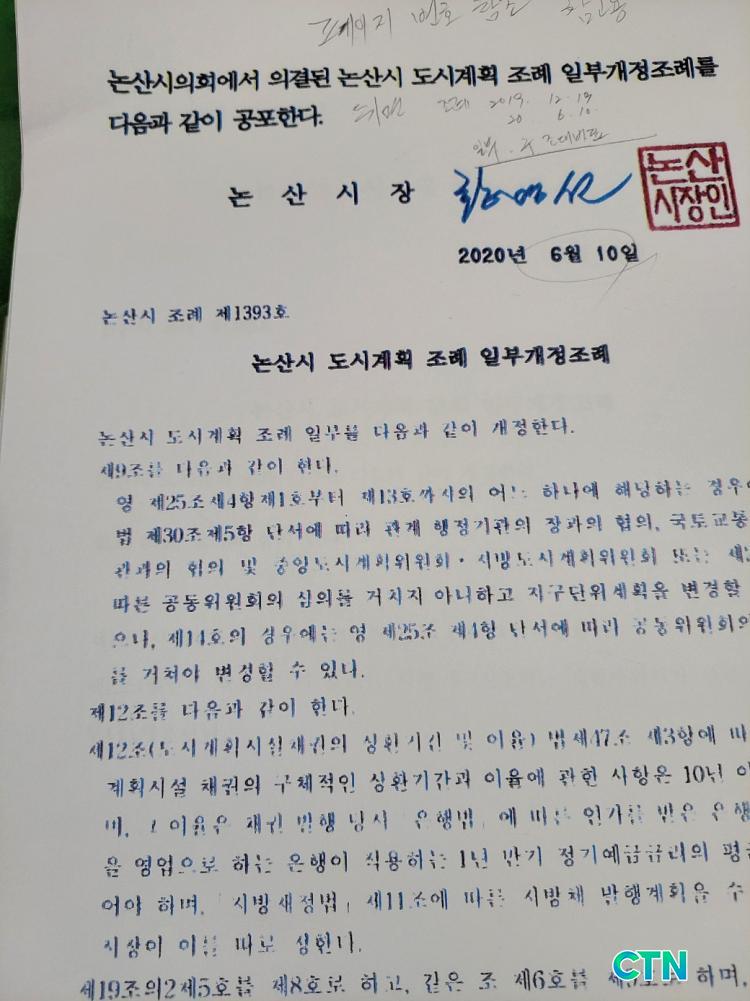 페이지 번호
논산시의회에서 의결된 논산시 도시계획 조례 일부개정조례를
다음과 같이 공포한다.
조례 2019. 12. 19
20 6.10
일부
논 산 시 장
논산
시장인
2020년 6월 10일
논산시 조례 제1393호
논산시 도시계획 조례 일부개정조례
논산시 도시계획 조례 일부를 다음과 같이 개정한다.
제9조를 다음과 같이 한다.
영 제25조제4항제1호부터 제13호까지의 어느 하나에 해당하는 경우에
법 제30조제5항 단서에 따라 관계 행정기관의 장과의 협의, 국토교통
관과의 협의 및 중앙도시계획위원회·지방도시계획위원회 또는
따른 공동위원회의 심의를 거치지 아니하고 지구단위계획을 변경할
으나, 제14호의 경우에는 영 제25조 제4항 단서에 따라 공동위원회의
를 거쳐야 변경할 수 있다.
제12조를 다음과 같이 한다.
제12조(도시계획시설채권의 상환기간 및 이율) 법 제47조 제3항에 따
계획시설 채권의 구체적인 상환기간과 이율에 관한 사항은 10년 이
며, 그 이율은 채권 발행 당시 「은행법」에 따른 인가를 받은 은행
을 영업으로 하는 은행이 적용하는 1년 만기 정기예금금리의 평균
어야 하며, 「지방재정법」 제11조에 따른 지방채 발행계획을 수
시장이 이를 따로 정한다.
제19조의2제5호를 제8호로 하고, 같은 조 제6호를 하며,
CTN